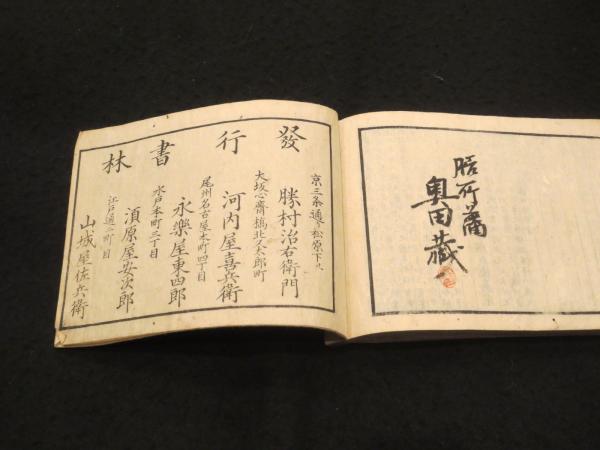 膳所藩
奥田蔵
發行書林
京三条通松原下ル
勝村治右衛門
大坂心齋橋北久太郎町
河内屋喜兵衛
尾州名古屋本町四丁目
永樂屋東四郎
水戸本町三丁目
須原屋安次郎
江戸通二町目
山城屋佐兵衛